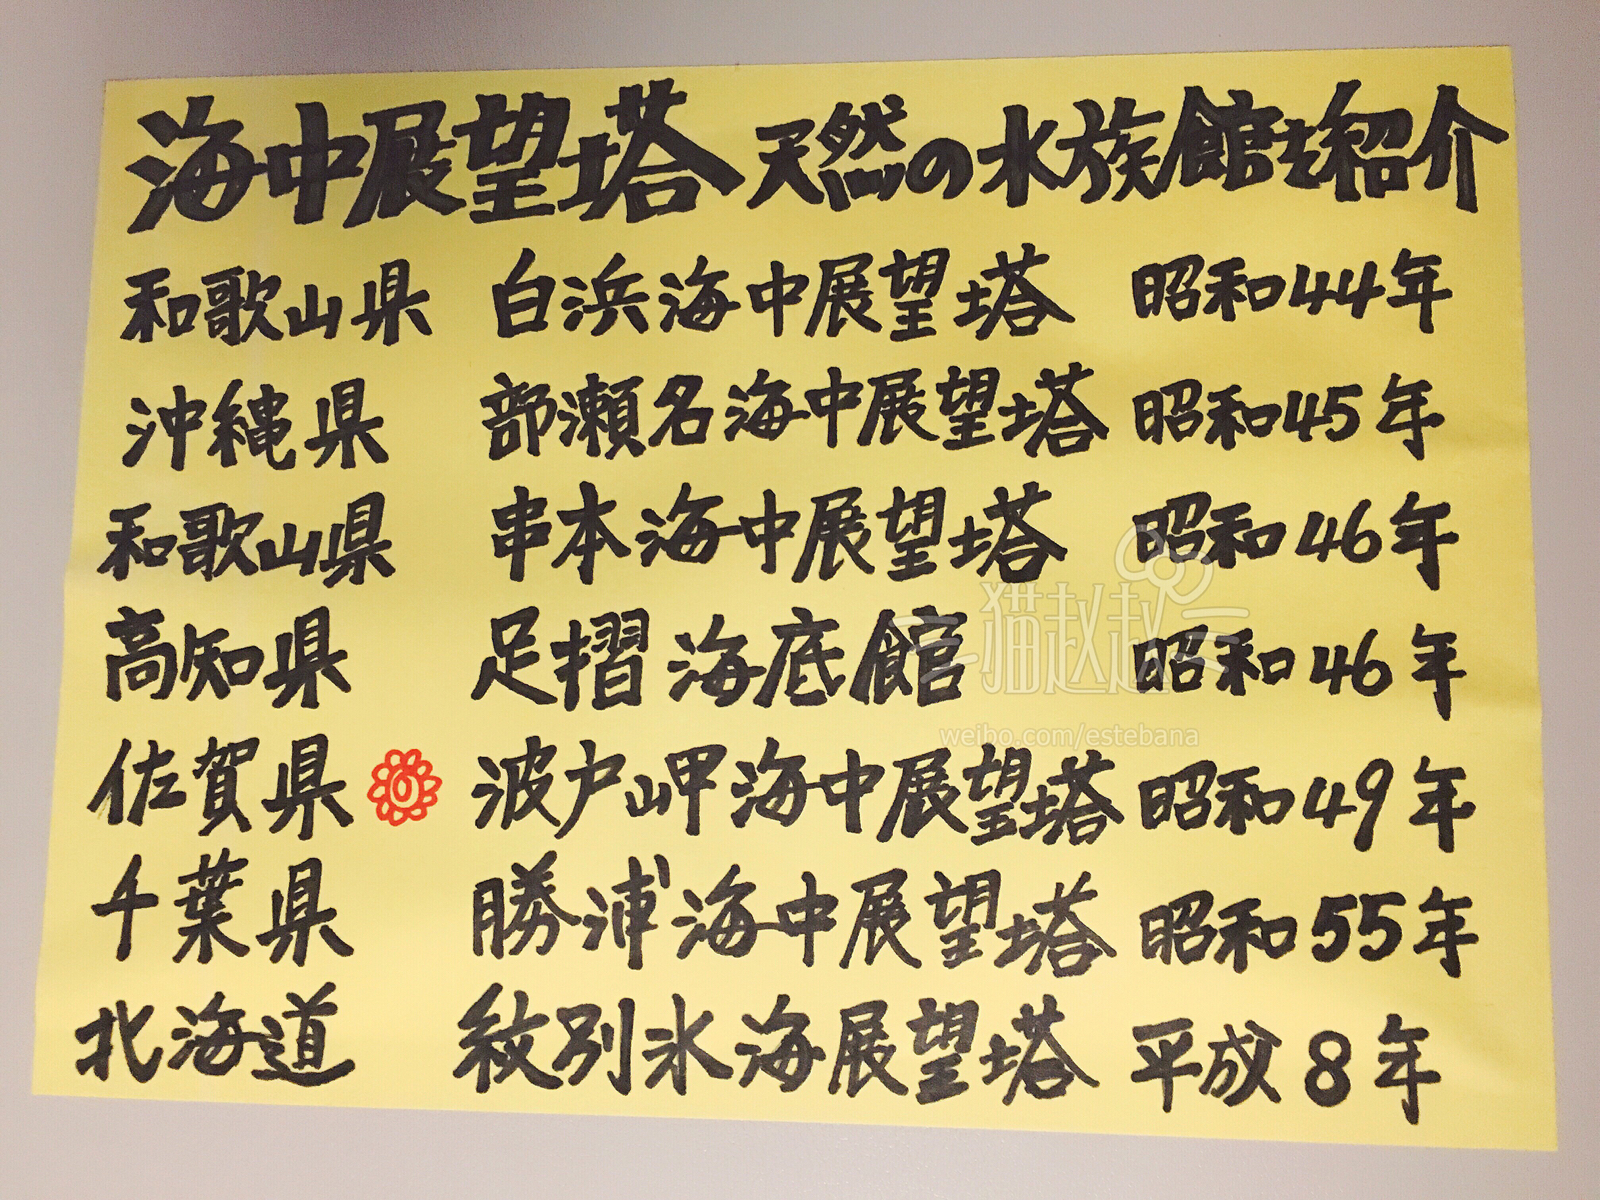 海中展望塔 天然の水族館を紹介
和歌山県 白浜海中展望塔 昭和44年
沖縄県 部瀬名海中展望塔 昭和45年
和歌山県 串本海中展望塔 昭和46年
高知県 足摺海底館 昭和46年
猫赵赵
weibo.com/estebana
佐賀県 波戸岬海中展望塔 昭和49年
千葉県 勝浦海中展望塔 昭和55年
北海道 紋別氷海展望塔 平成8年